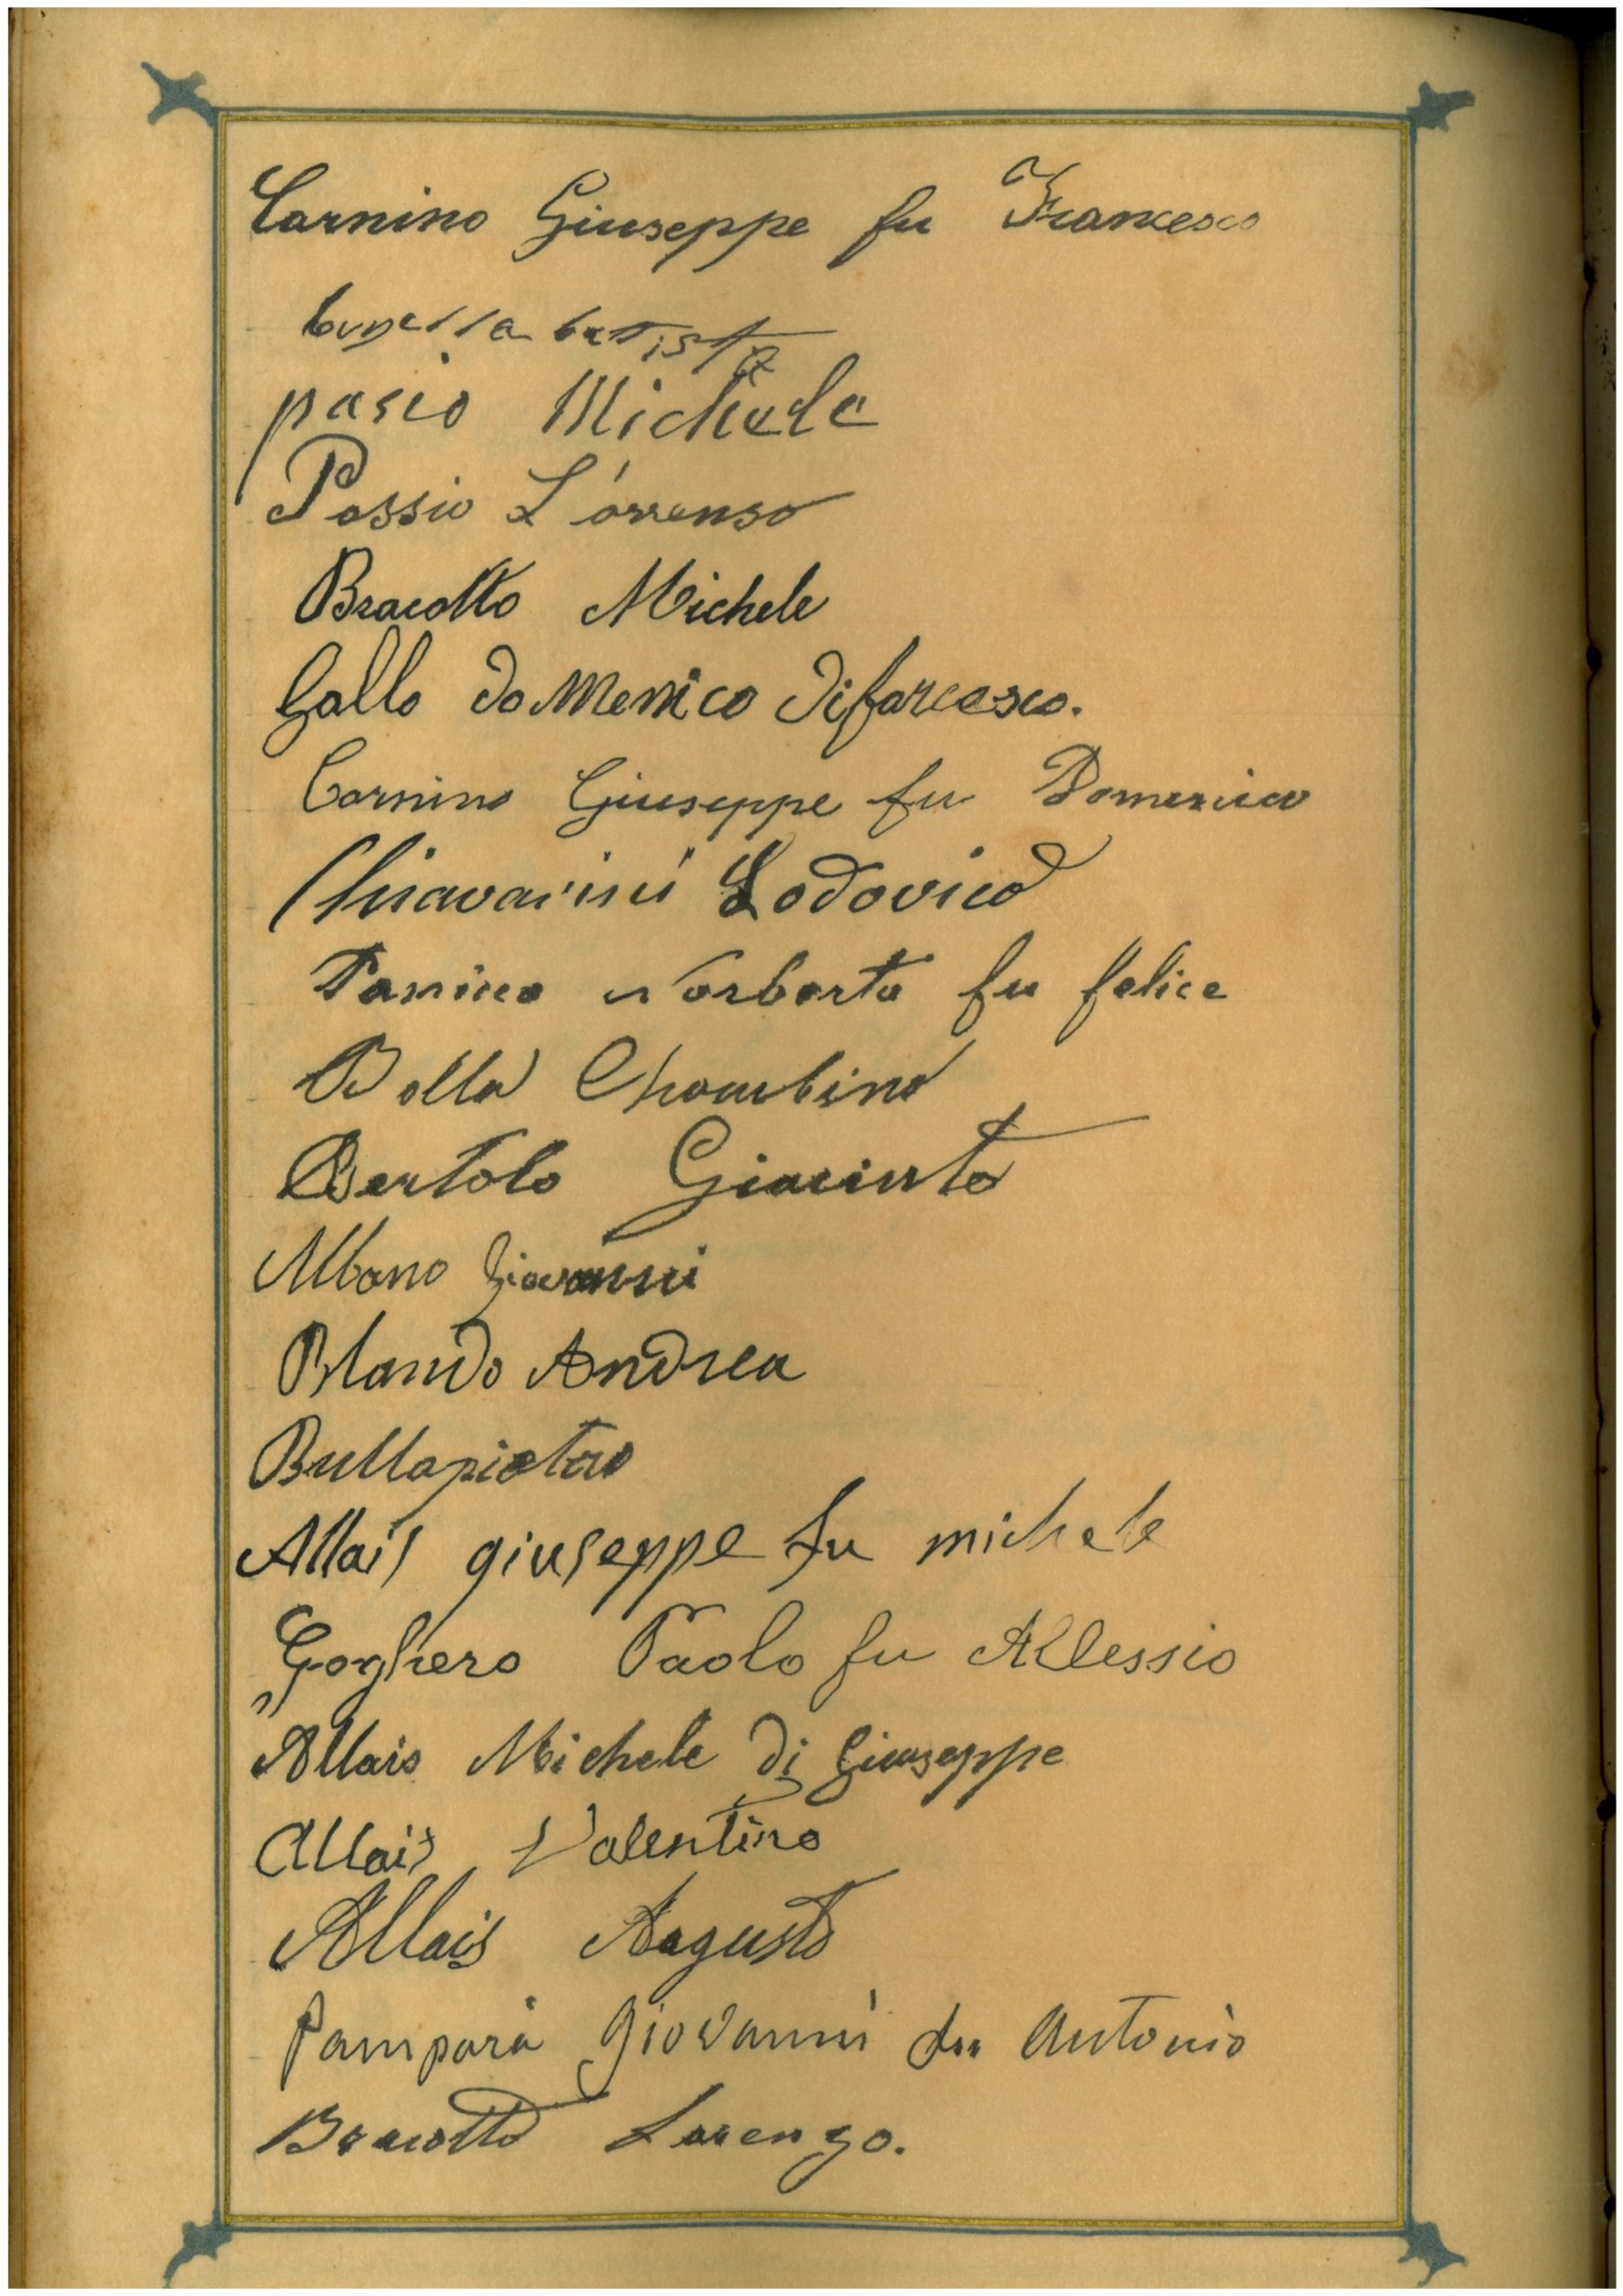 Carnino Giuseppe fu Francesco
batista
pasio Michele
Possio Lorrenso
Bracotto Michele
Gallo domenico di farcesco.
Carnino Giuseppe fu Domenico
Chiavarini Lodovico
Norberto fu felice
Bolla
Bertolo Giacinto
Albano Giovanni
Blando Andrea
Bulla pietro
Allais giuseppe fu michele
Goghero Paolo fu Allessio
Allais Michele di Giuseppe
Allais Valentino
Allais Augusto
Pamparà Giovanni fu Antonio
Bracotto Lorenzo.